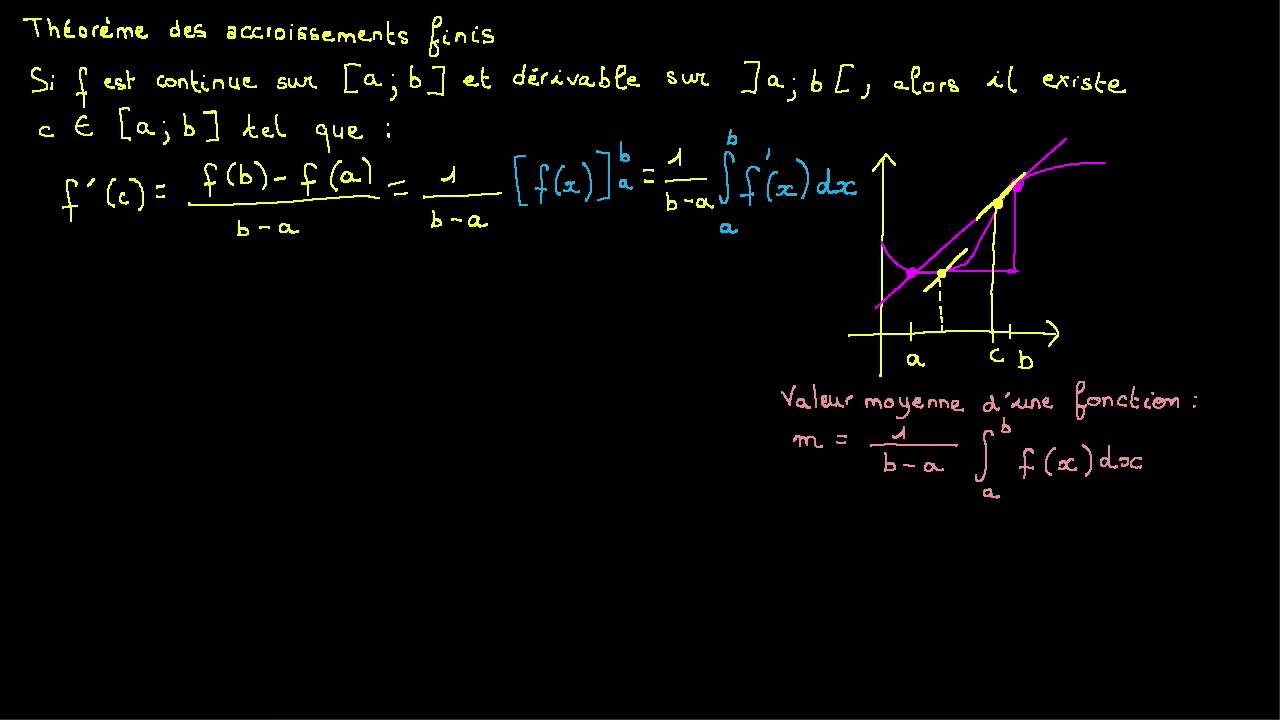 Théorème des accroissements finis
Si f est continue sur [a;b] et dérivable sur ]a;b[, alors il existe
c ∈ [a;b] tel que :
f'(c) = f(b)-f(a) / b-a = 1 / b-a [f(x)]_a^b = 1 / b-a ∫_a^b f'(x)dx
a c b
Valeur moyenne d'une fonction :
m = 1 / b-a ∫_a^b f(x)dx